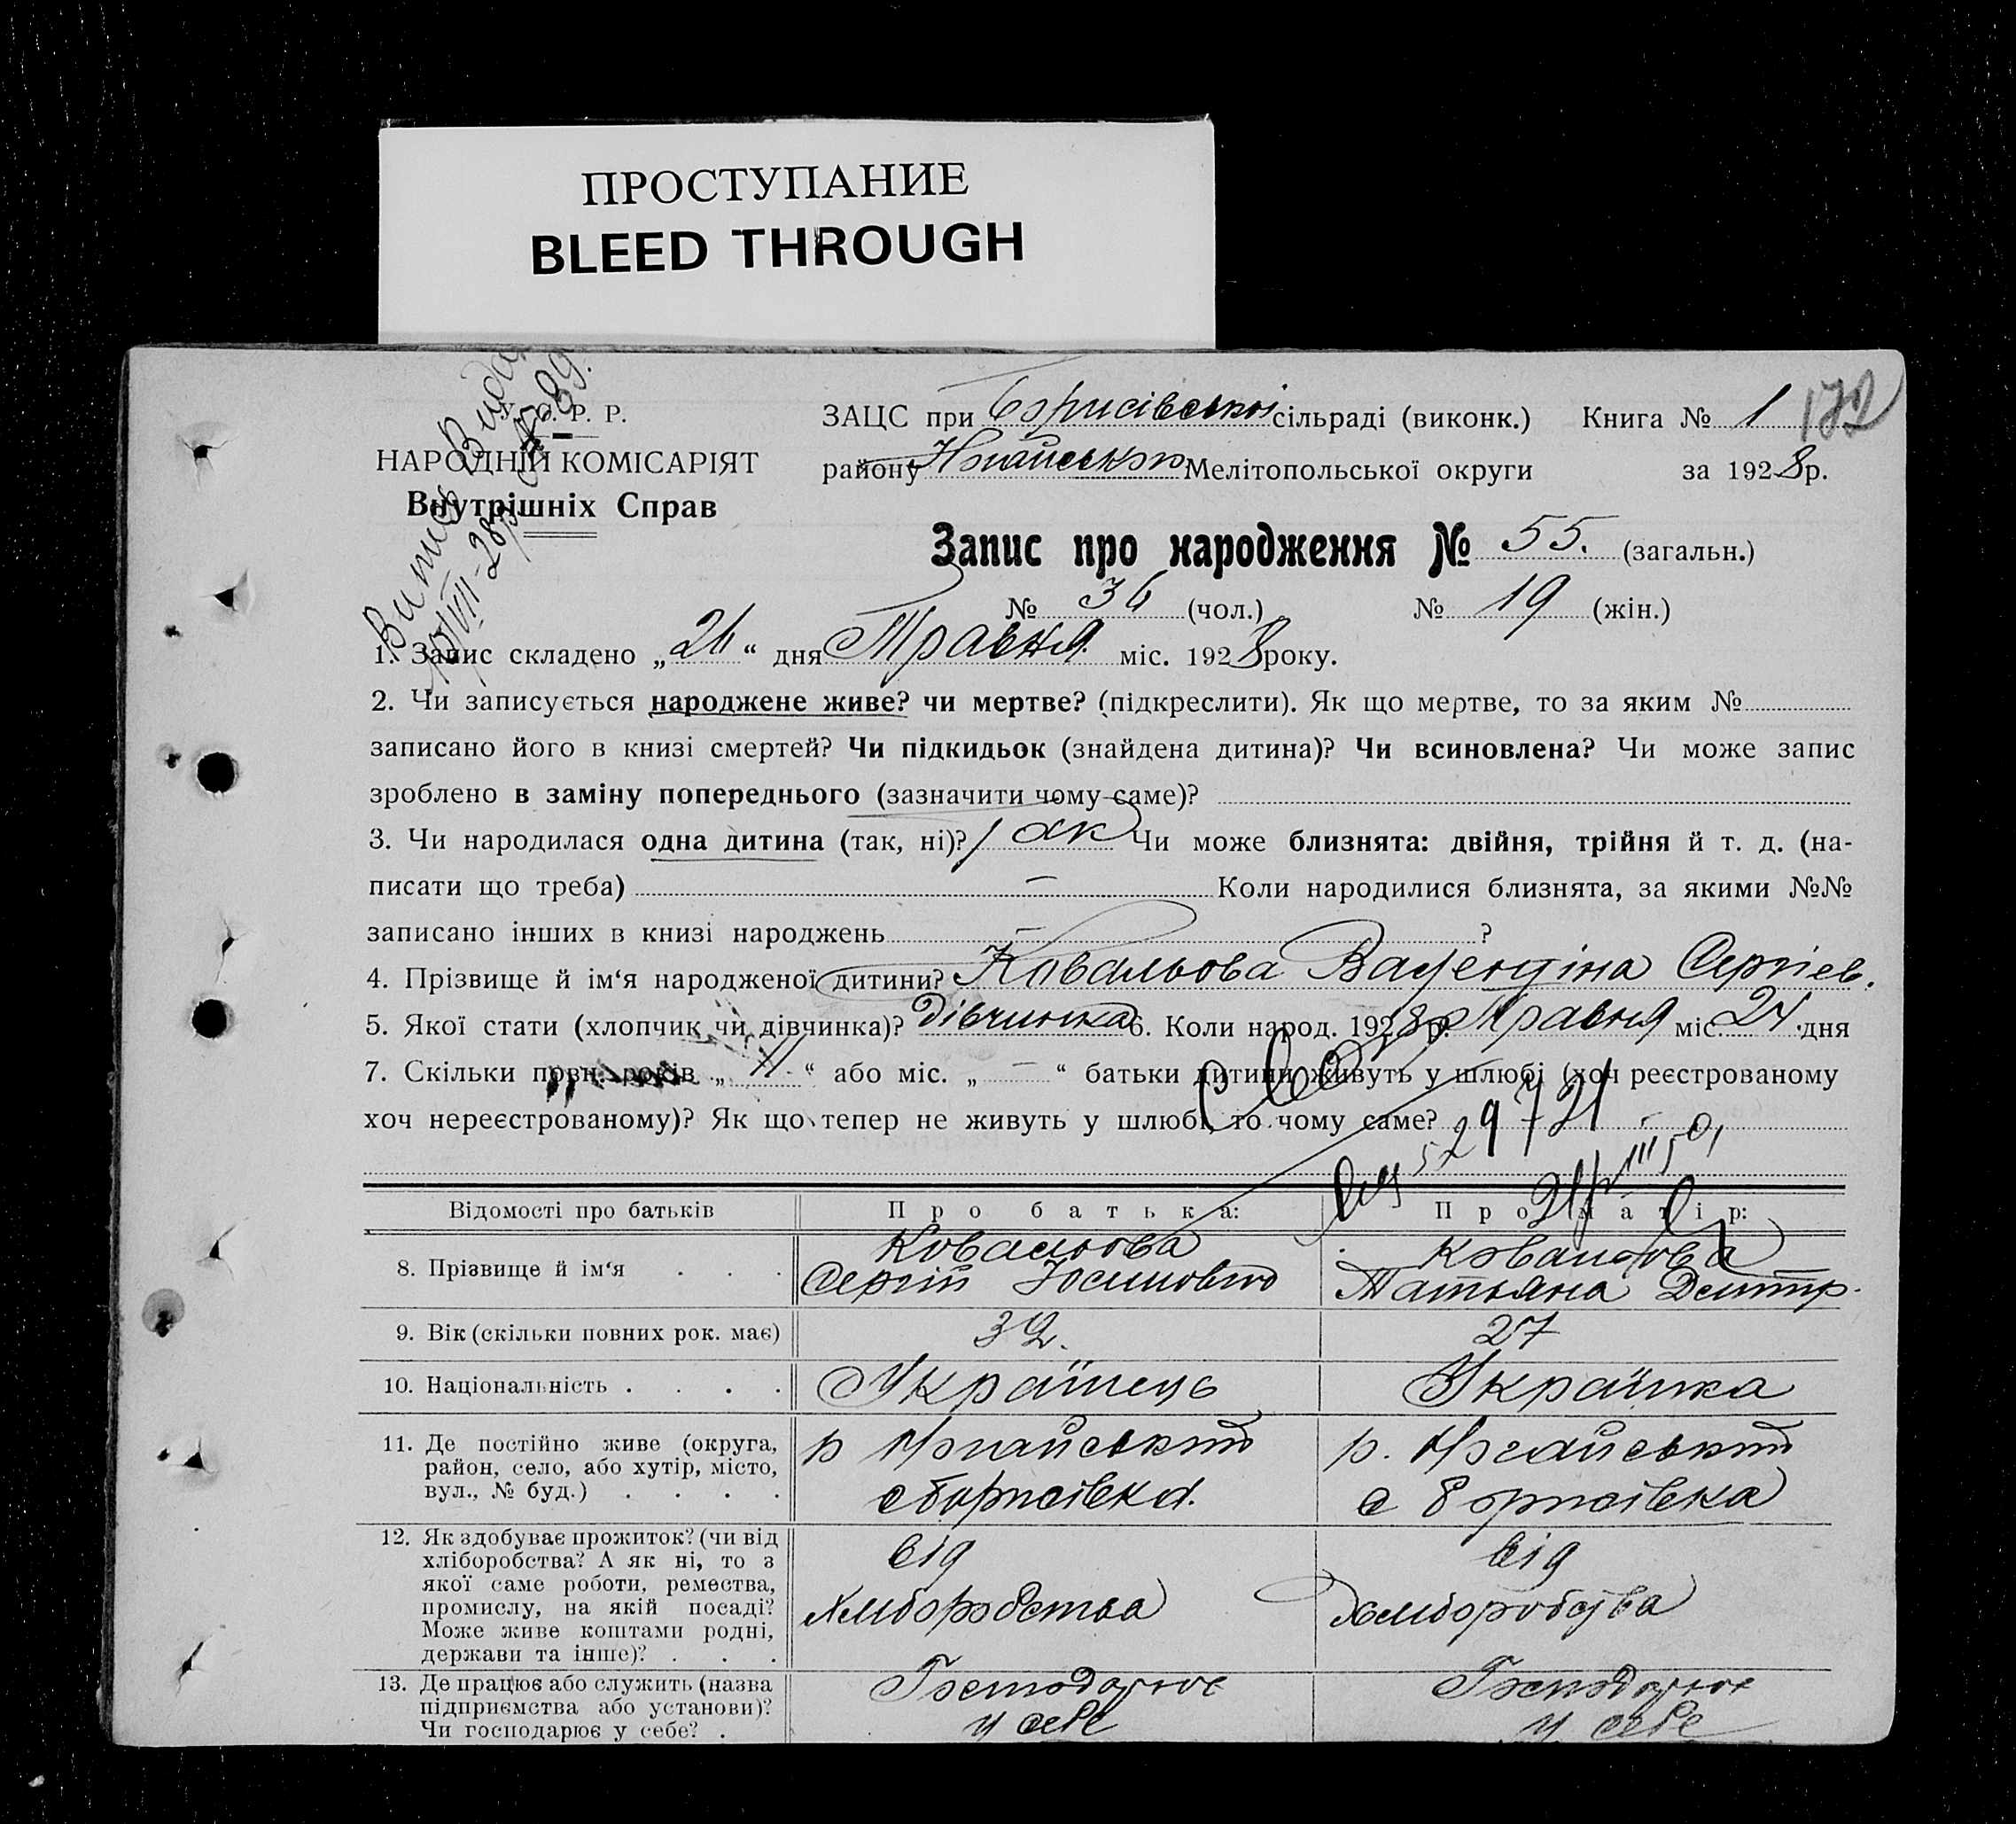 ПРОСТУПАНИЕ
BLEED THROUGH
У. С. Р. Р.
НАРОДНІЙ КОМІСАРІЯТ
Внутрішніх Справ
ЗАЦС при Борисівської сільраді (виконк.) Книга № 1 172
району Ногайського Мелітопольської округи за 1928 р.
Запис про народження № 55. (загальн.)
№ 36 (чол.) № 19 (жін.)
1. Запис складено „26“ дня Травня міс. 1928 року.
2. Чи записується народжене живе? чи мертве? (підкреслити). Як що мертве, то за яким №
записано його в книзі смертей? Чи підкидьок (знайдена дитина)? Чи всиновлена? Чи може запис
зроблено в заміну попереднього (зазначити чому саме)?
3. Чи народилася одна дитина (так, ні)? Так Чи може близнята: двійня, трійня й т. д. (на-
писати що треба) — Коли народилися близнята, за якими №№
записано інших в книзі народжень — ?
4. Прізвище й ім‘я народженої дитини? Ковальова Валентіна Сергіев.
5. Якої стати (хлопчик чи дівчинка)? Дівчинка 6. Коли народ. 1928 р. Травня міс. 24 дня
7. Скільки повн. років „11“ або міс. „—“ батьки дитини живуть у шлюбі (хоч реєстрованому
хоч нереєстрованому)? Як що тепер не живуть у шлюбі, то чому саме?
Відомості про батьків Про батька: Про матір:
8. Прізвище й ім‘я . . . Ковальова Сергій Йосипович Ковальова Татьяна Дмитр.
9. Вік (скільки повних рок. має) 32. 27
10. Національність . . . . Українець Українка
11. Де постійно живе (округа,
район, село, або хутір, місто,
вул., № буд.) . . . .
р Ногайський
с Борисівка.
р. Ногайський
с Борисівка
12. Як здобуває прожиток? (чи від
хліборобства? А як ні, то з
якої саме роботи, ремества,
промислу, на якій посаді?
Може живе коштами родні,
держави та інше)? . . .
від
хліборобства
від
хліборобства
13. Де працює або служить (назва
підприємства або установи)?
Чи господарює у себе? .
Господарює
у себе
Господарює
у себе